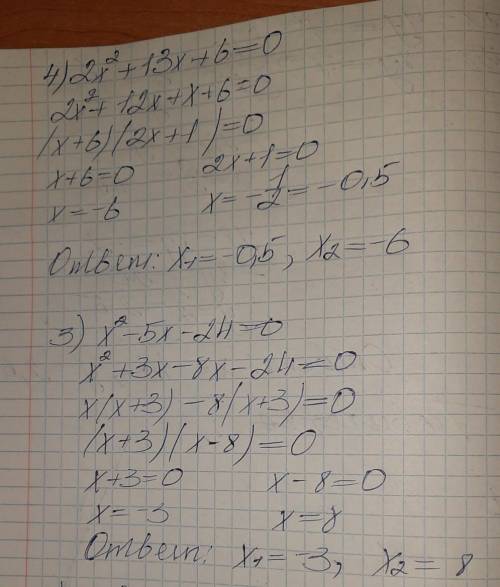 4) 2x² + 13x + 6 = 0
2x² + 12x + x + 6 = 0
(x+6)(2x+1) = 0
x+6=0 2x+1=0
x=-6 x=-1/2=-0,5
Ответ: x₁=-0,5, x₂=-6
3) x²-5x-24=0
x²+3x-8x-24=0
x(x+3)-8(x+3)=0
(x+3)(x-8)=0
x+3=0 x-8=0
x=-3 x=8
Ответ: x₁=-3, x₂=8